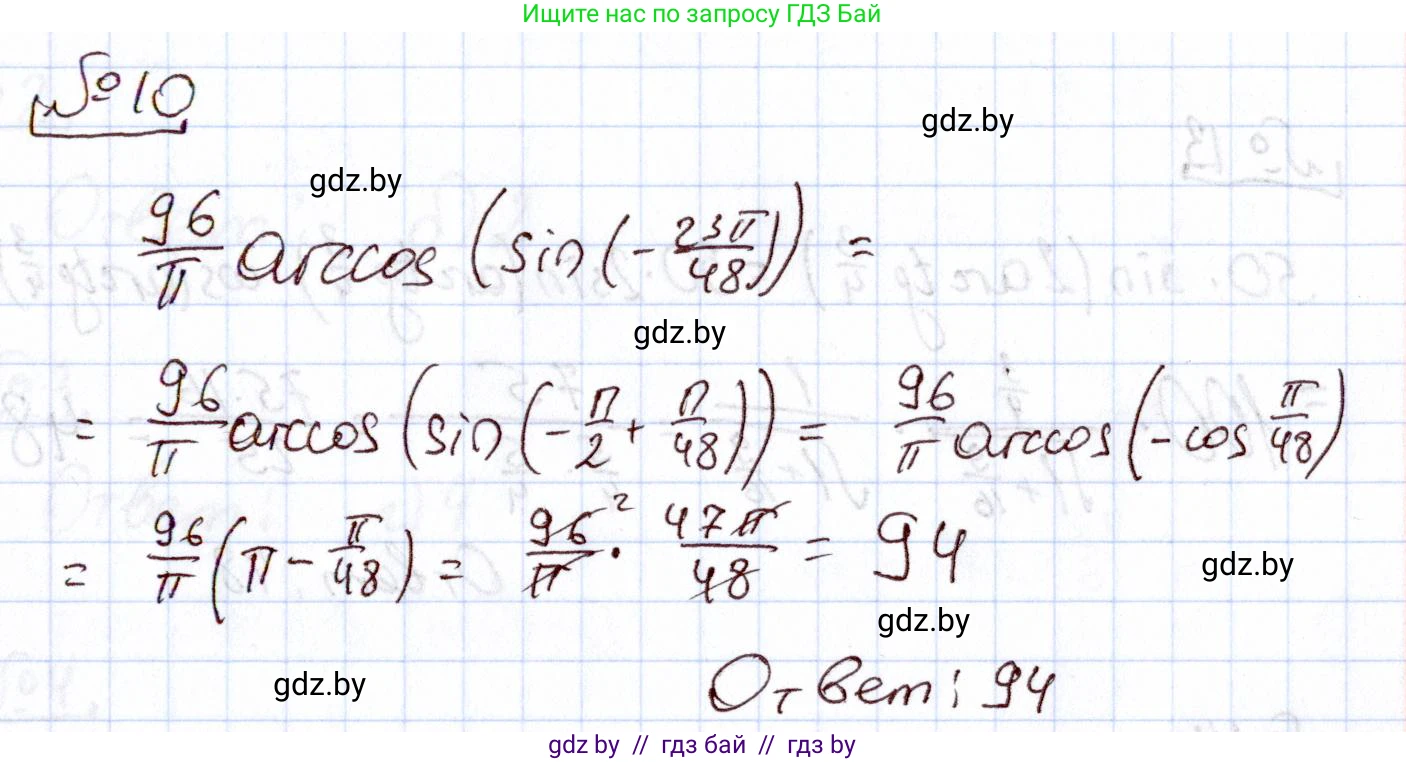 Ищите нас по запросу ГДЗ Бай
№10
gdz.by
gdz.by
96/π arccos (sin (-23π/48)) =
gdz.by
= 96/π arccos (sin (-π/2 + π/48)) = 96/π arccos (-cos π/48)
= 96/π (π - π/48) = 96/π ² · 47π/48 = 94
gdz.by
gdz.by
Ответ: 94
gdz.by
gdz by // гдз бай // гдз by